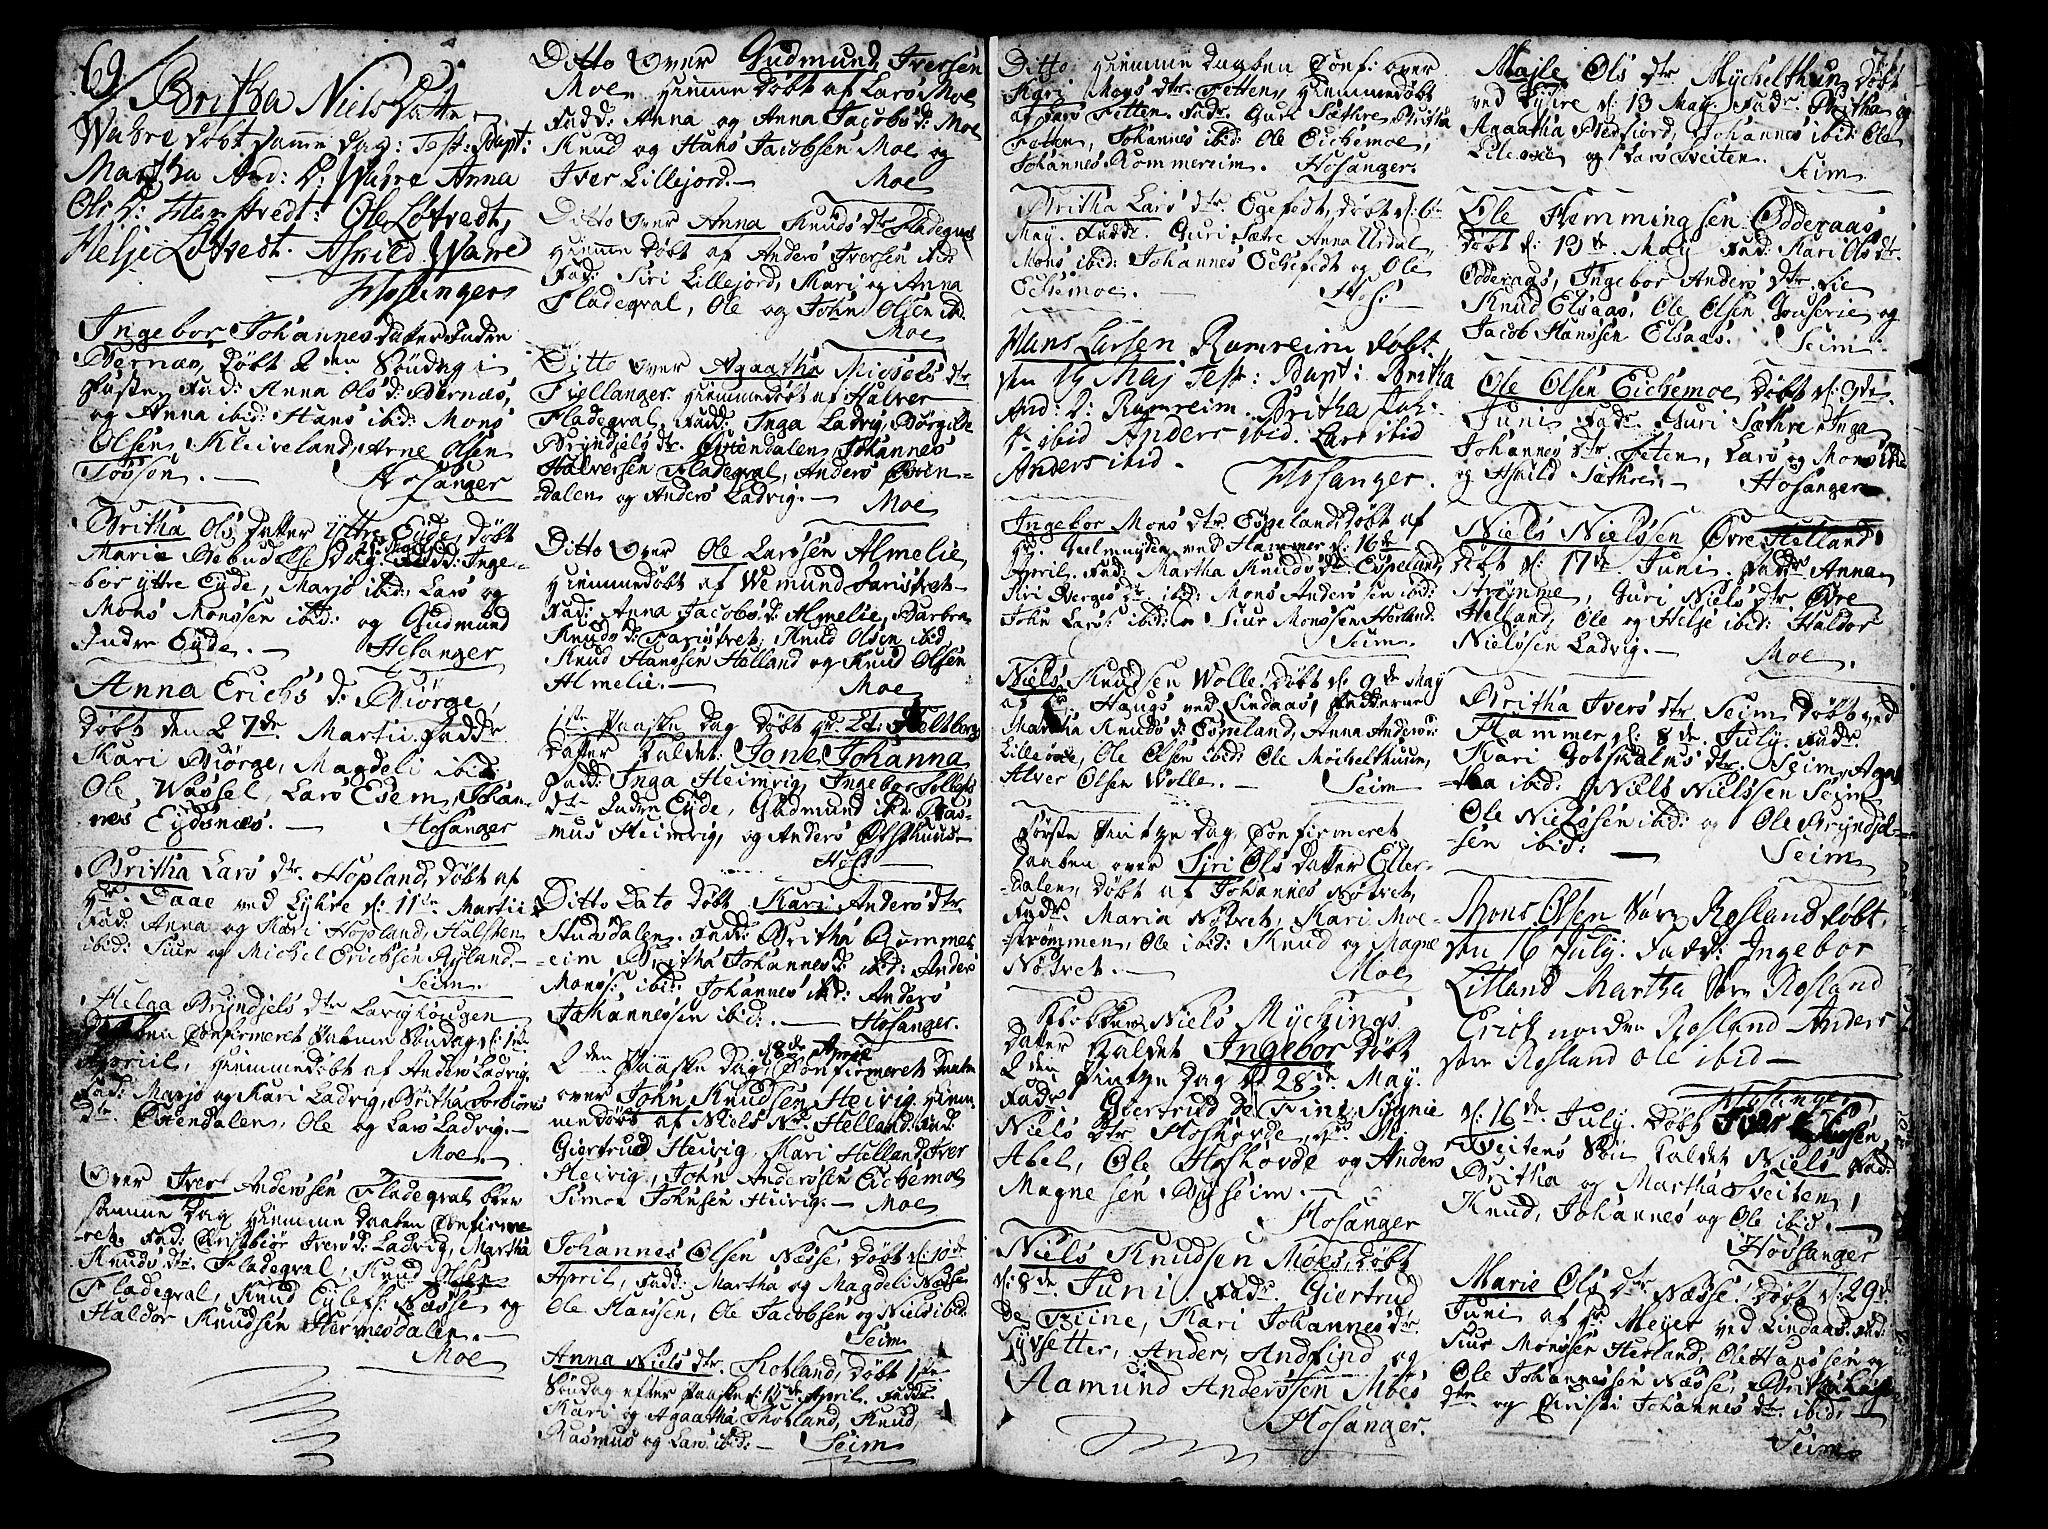 69
Britha Niels Datter
Wahre døbt samme dag: Test: Bapt:
Martha And: D: Wahre Anna
Ols D: Humstvedt: Ole Løtvedt,
Helje Løtvedt. Askild Wahre
Hoslinger
Ingebor Johannes datter Indre
Bernæs, døbt 2den Søndag i
Faste, Fad: Anna Ols d: Bernæs,
og Anna ibid: Hans ibid: Mons
Olsen Kleiveland, Arne Olsen
Hosanger
Britha Ols datter Yttre Eide, døbt
Mariæ Bebudelses Dag. Fadd: Inge-
bor yttre Eyde, Marjo ibid: Lars og
Mons Monssen ibid: og Gudmund
Indre Eyde. Hosanger
Anna Erichs d: Biørge,
døbt den 27de Martii. Fadde
Kari Biørge, Magdeli ibid
Ole Wassel, Lars Esem, Johan-
nes Eydsnæs. Hosanger
Britha Lars dtr. Hopland, døbt af
Hr. Daae ved Lyhre d: 11te Martii
Fad: Anna og Kari Hopland, Halsten
ibid: Siur og Michel Erichsen Ryland.
Seim
Helga Bryndjels dtr Lavighougen
Daaben Confirmeret samme Søndag d: 1te
Apriil, hiemmedøbt af Anders Ladvig.
Fad: Marjo og Kari Ladvig, Britha
dtr. Ole og Lars Ladvig.
Moe
Over Iver Anderssen Fladegral blev
samme Dag hiemme daaben Confirme-
ret. Fad: Iversd: Ladvig, Martha
Knuds dtr. Fladegral, Knud Olsen
Fladegral, Knud Eylefs: Næsse og
Haldor Knudsen Hermesdalen.
Moe
Ditto Over Gudmund Iversen
Moe hiemmedøbt af Lars Moe
Fadd: Anna og Anna Jacobs d: Moe
Knud og Hans Jacobsen Moe og
Iver Lillejord. Moe
Ditto Over Anna Knuds dtr Fladegral
hiemmedøbt af Anders Iversen ibid:
Fad: Siri Lillejord, Mari og Anna
Fladegral, Ole og John Olsen ibid.
Moe
Ditto over Agaatha Michels dtr
Fiellanger hiemmedøbt af Halver
Fladegral. Fadd: Inga Ladvig, Børgilde
Bryndjels dtr. Johannes
Halversen Fladegral, Anders
dalen og Anders Ladvig.
Moe
Ditto Over Ole Larssen Almelie
hiemmedøbt af Wemund Faristvet
Fad: Anna Jacobs d: Almelie, Barbra
Knuds d: Faristvet, Knud Olsen ibid,
Knud Hanssen Helland og Knud Olsen
Almelie. Moe
1ste Paaske Dag døbt Hr. Lt: Holtbergs
Datter kaldet Lone Johanna
Fadd: Inga Heimvig, Ingebor
dtr Indre Eyde, Gudmund ibid Ras-
mus Heimvig, og Anders
Hos:
Ditto Dato døbt Kari Anders dtr.
Studsdalen. Fadd: Britha Rommer
eim Britha Johannes d: ibid: Anders
Mons: ibid: Johannes ibid: Anders
Johannessen ibid: Hosanger.
2den Paaske Dag 8de April Confirmeret Daaben
over John Knudsen Heivig hiem-
medøbt af Niels Nr. Helland. Fad:
Giertrud Heivig Kari Helland, Iver
Heivig, John Anderssen Eichemoe
Simon Johnsen Heivig. Moe
Johannes Olsen Næsse, døbt d: 10de
April, Fadd: Martha og Magdeli Næsse
Ole Hanssen, Ole Jacobsen og Niels ibid:
Seim
Anna Niels dtr. Hotland, døbt 1ste
Søndag efter Paaske d: 14de April. Fadd:
Kari og Agaatha Hotland, Knud,
Rasmus og Lars ibid: Seim
Ditto hiemme dagben Conf: over
Mari Mons dtr. Fetten, hiemmedøbt
af Lars Fetten. Fadr. Guri Sæthre, Britha
Fetten, Johannes ibid: Ole Eichemoe,
Johannes Rommereim. Hosanger.
Britha Lars dtr. Egefedt, døbt d: 6te
May. Fadd: Guri Sætre Anna Ursdal
Mons ibid: Johannes Echefedt og Ole
Echemoe. Hos:
Hans Larsen Ramreim døbt
den 19 Maj Test: Bapt: Britha
And: D: Ramreim. Britha Joh:
ibid Anders ibid. Lars ibid
Anders ibid. Hosanger.
Ingebor Mons dtr. Espeland, døbt af
Hr. ved Hammer d: 16de
April. Fad: Martha Knuds dtr Espeland
Siri dtr. ibid: Mons Anderssen ibid:
John Lars: ibid: Siur Monssen Horland.
Seim
Niels Knudsen Wolle. døbt d: 9de May
af Hr. Haugs ved Lindaas, Fadderne
Martha Knuds d: Espeland, Anna Anders d:
Lilleøre, Ole Olsen ibid: Ole Mychelthuun,
Alver Olsen Wolle. Seim
Første Pintze Dag Confirmeret
Daaben over Siri Ols Datter Eller-
dalen, døbt af Johannes Nøtvet,
Fadr. Maria Nøtvet, Kari Moe-
strømmen, Ole ibid: Knud og Magne
Nøtvet. Moe
Klokker Niels Mychings
Datter kaldet Ingebor døbt
2den Pintze Dag d: 28de May.
Fadr. Giertrud de Fine, Sygnie
Niels dtr Hoshovde, Hr. M.
Abel, Ole Hoshovde og Anders
Magnesen Bysseim.
Hosanger
Niels Knudsen Moes, døbt
d: 8de Juni. Fadr. Giertrud
de Fiine, Kari Johannes dtr.
Sysetter, Ander, Andfind og
Aamund Anderssen Moes
Hosanger.
71
Majle Ols dtr Mychelthun døbt
ved Lyhre d: 13 May. Fadr. Britha og
Agaatha Bredfiord, Johannes ibid: Ole
Lileøre og Lars Tveiten. Seim
Ole Flemmingsen Odderaas,
døbt d: 13de May Fad: Kari Ols dtr.
Odderaas, Ingebor Anders dtr. Lie
Knud Elsaas, Ole Olsen og
Jacob Hanssen Elsaas. Seim
Ole Olsen Eichemoe, døbt d: 3de
Juni Fadr. Guri Sæthre, Inga
Johannes dtr. Feten, Lars og Mons ibid
og Askild Sæthre. Hosanger
Niels Nielssen Øvre Helland
døbt d: 17de Juni. Fadr. Anna
Strømme, Guri Niels dtr. Øvre
Helland, Ole og Helje ibid: Haldor
Nielssen Ladvig. Moe.
Britha Ivers dtr. Seim døbt ved
Hammer d: 8de July. Fadr.
Kari Gotskalks dtr. Seim, Agaa
tha ibid: Niels Nielssen Seim
Ole Nielssen ibid: og Ole Bryndjel-
sen ibid: Seim
Mons Olsen Søre Rosland døbt
den 16 July. Fadd: Ingebor
Litland Martha Søre Rosland
Erich norden Rosland Anders
søre Rosland Ole ibid
Hoslinger
d: 16de July. døbt Iver
Tveitens Søn kaldet Niels Fad:
Britha og Martha Tveiten,
Knud, Johannes og Ole ibid:
Hossanger
Marie Ols dtr Næsse, døbt d: 29de
Juni af Hr. Meyer ved Lindaas. Fad:
Siur Monssen Herland, Ole Hanssen og
Ole Johannessen Næsse, Britha
dtr og Christi Johannes dtr. ibid:
Seim